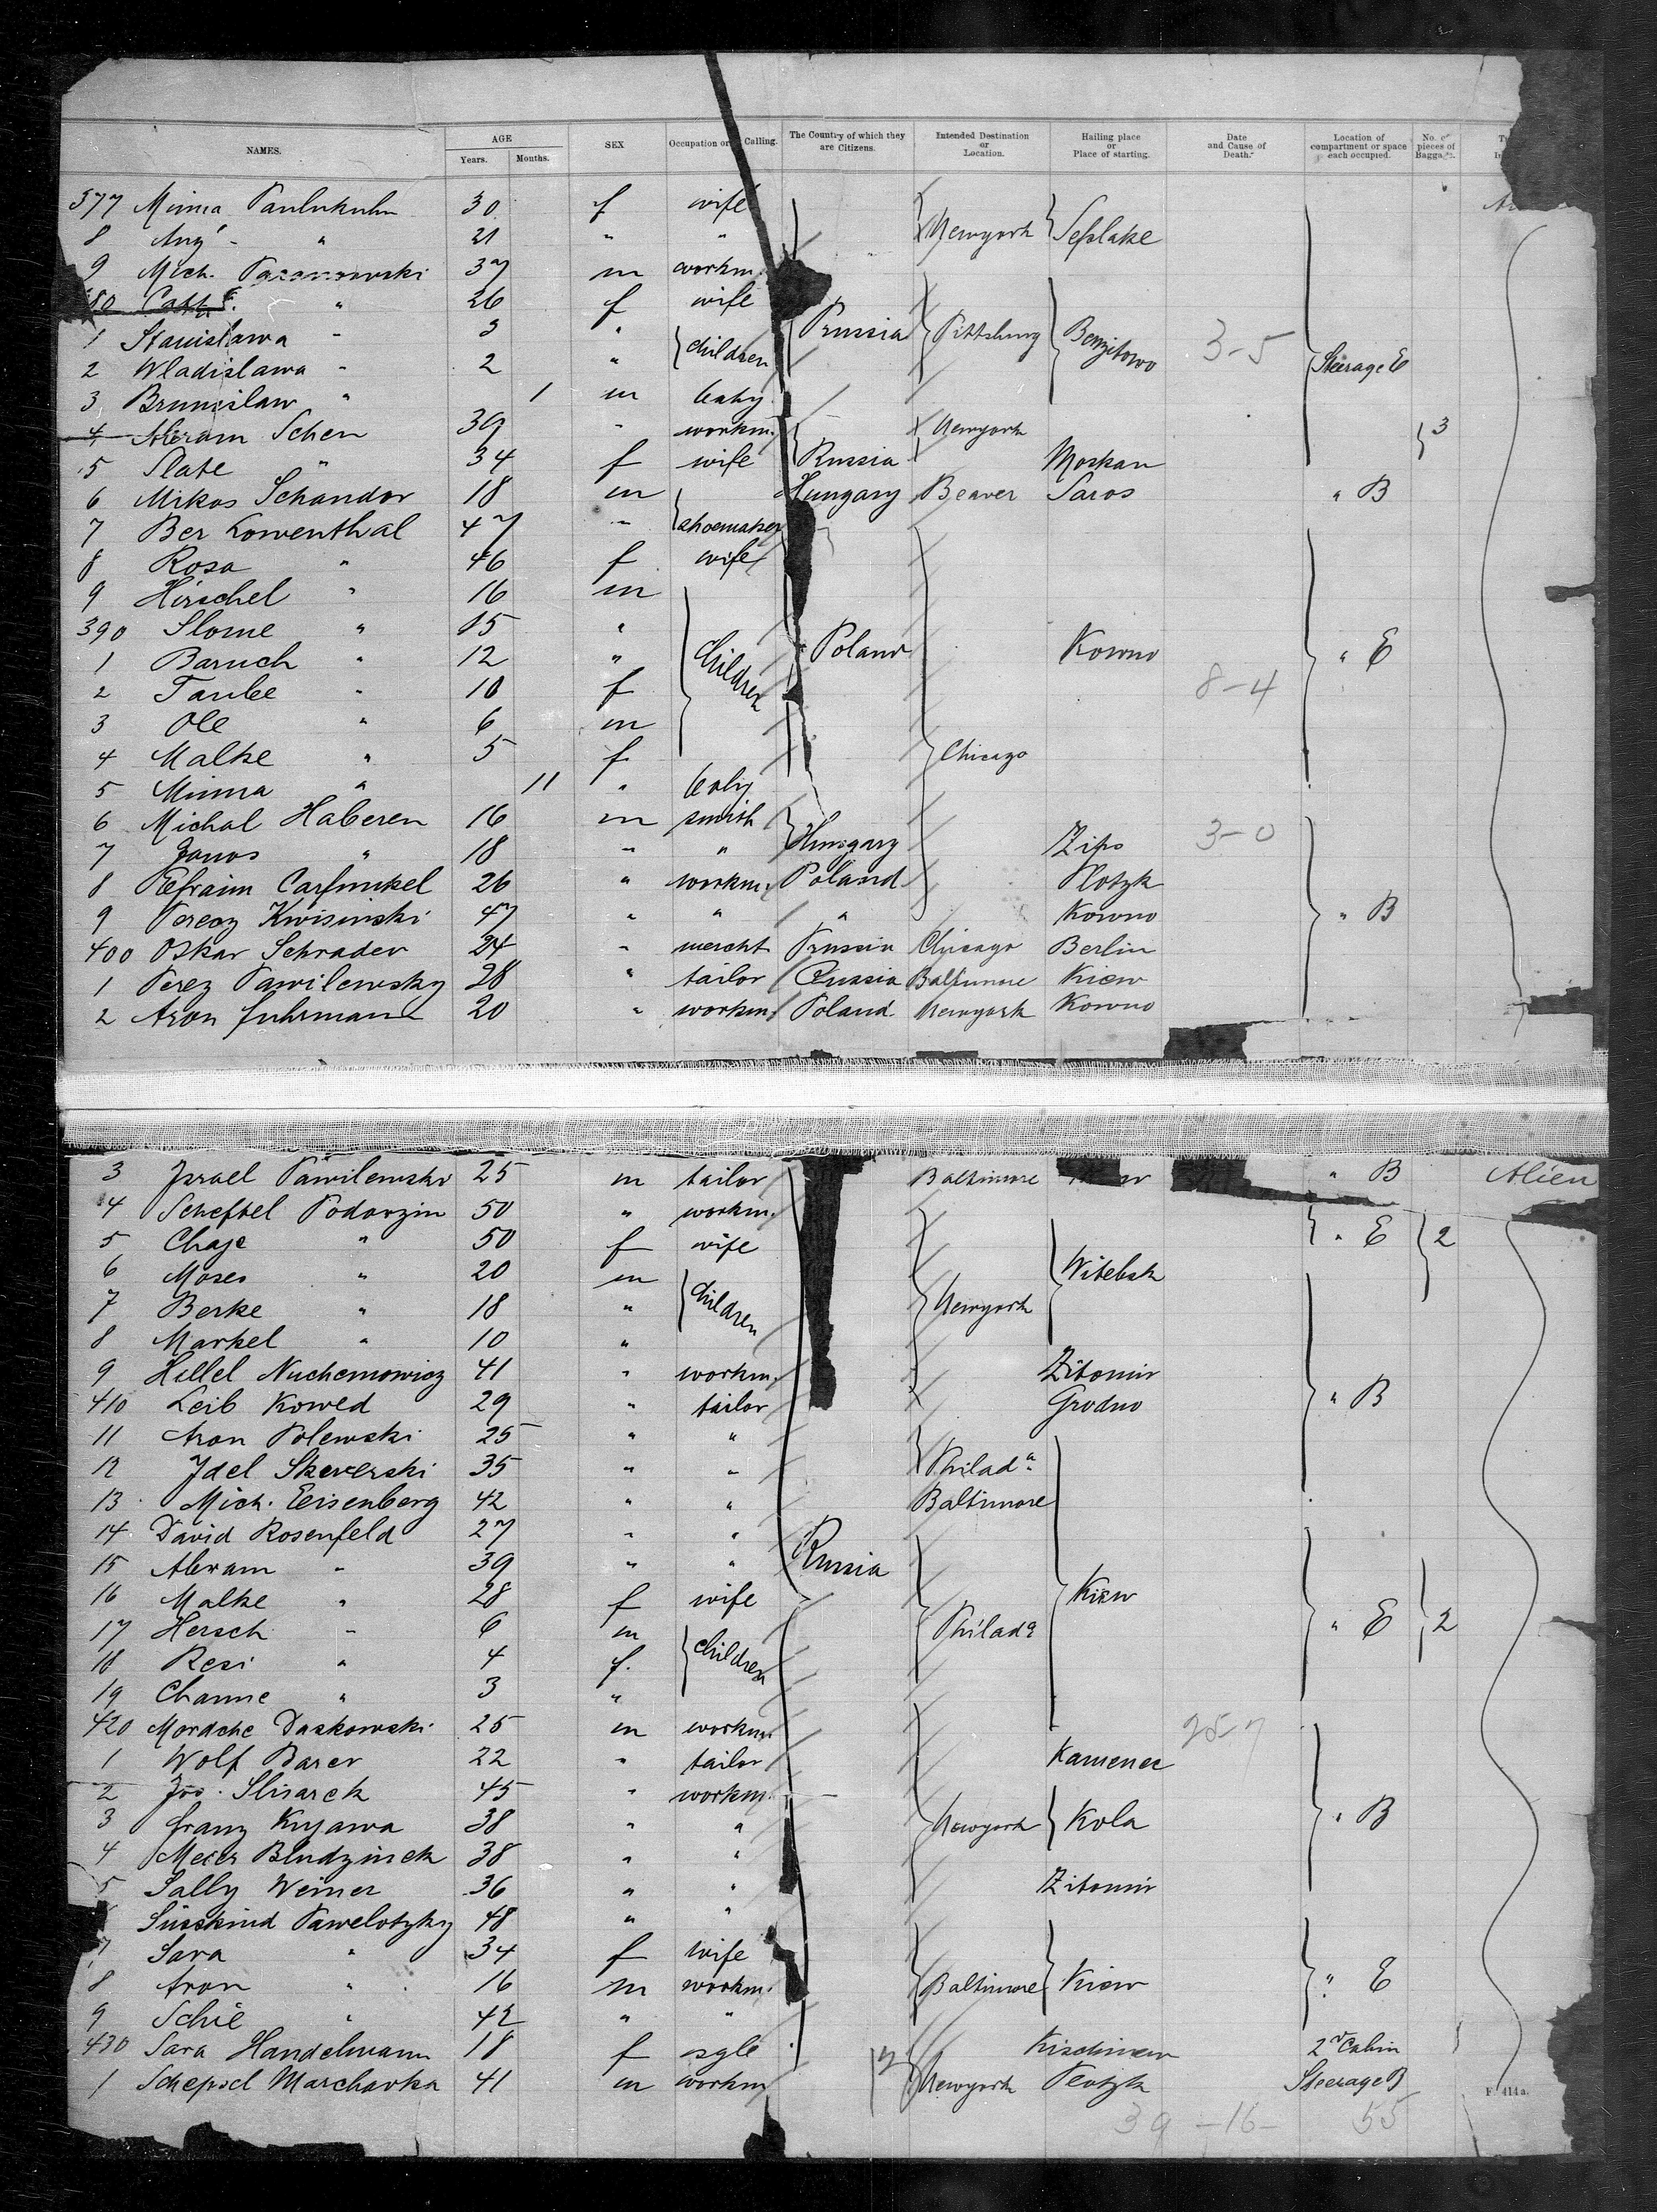 NAMES. AGE Years. Months. SEX Occupation or Calling. The Country of which they are Citizens. Intended Destination or Location. Hailing place or Place of starting. Date and Cause of Death. Location of compartment or space each occupied. No. of pieces of Baggage.
377 Minna Paulukuhn 30 f wife
8 Aug' - " 21 " " Newyork
9 Mich. 37 m workm.
80 26 f wife
1 Stanislawa - 3 " children Prussia Pittsburg 3-5
2 Wladislawa - 2 " Steerage E
3 Bronislaw " 1 m baby
4 Abram Schen 39 " workm. Newyork 3
5 Slate " 34 f wife Russia Moskau
6 Mikos Schandor 18 m Hungary Beaver Saros " B
7 Ber Lowenthal 47 " shoemaker
8 Rosa " 46 f wife
9 Hirschel " 16 m
390 Slome " 15 "
1 Baruch " 12 " children Poland Kowno " E
2 Taube " 10 f 8-4
3 Ole " 6 m
4 Malke " 5 f Chicago
5 Minna " 11 " baby
6 Michal Haberen 16 m smith
7 Janos " 18 " " Hungary Zips 3-0
8 Efraim Carfunkel 26 " workm. Poland Plotzk
9 Perecz Kwisinski 47 " " " Kowno " B
400 Oskar Schrader 24 " mercht Prussia Chicago Berlin
1 Perez Pawilewsky 28 " tailor Russia Baltimore Kiew
2 Aron Fuhrmann 20 " workm. Poland Newyork Kowno
3 Israel Pawilewski 25 m tailor Baltimore " B Alien
4 Scheftel Podorzin 50 " workm.
5 Chaje " 50 f wife " E 2
6 Moses " 20 m children Witebsk
7 Berke " 18 " Newyork
8 Markel " 10 "
9 Hillel Nuchemowicz 41 " workm. Zitomir
410 Leib Kowed 29 " tailor Grodno " B
11 Aron Polewski 25 " "
12 Idel Skewerski 35 " " Philada
13 Mich. Eisenberg 42 " " Baltimore
14 David Rosenfeld 27 " "
15 Abram " 39 " " Russia
16 Malke " 28 f wife Kiew
17 Hersch " 6 m children Philada " E 2
18 Resi " 4 f.
19 Channe " 3 "
420 Mordche Daskowski 25 m workm. 25-7
1 Wolf Barer 22 " tailor Kamenec
2 Jos. Slisarek 45 " workm.
3 Franz Kujawa 38 " " Newyork Kola " B
4 Meier Bludzinek 38 " "
5 Sally Weiner 36 " " Zitomir
Süsskind Pawelotzky 48 " "
7 Sara " 34 f wife
8 Aron " 16 m workm. Baltimore Kiew " E
9 Schie " 42 " "
430 Sara Handelmann 18 f sgle Kischinew 2d Cabin
1 Schepsel Marchavka 41 m workm Newyork Plotzk Steerage B
F. 414a.
39 -16- 55